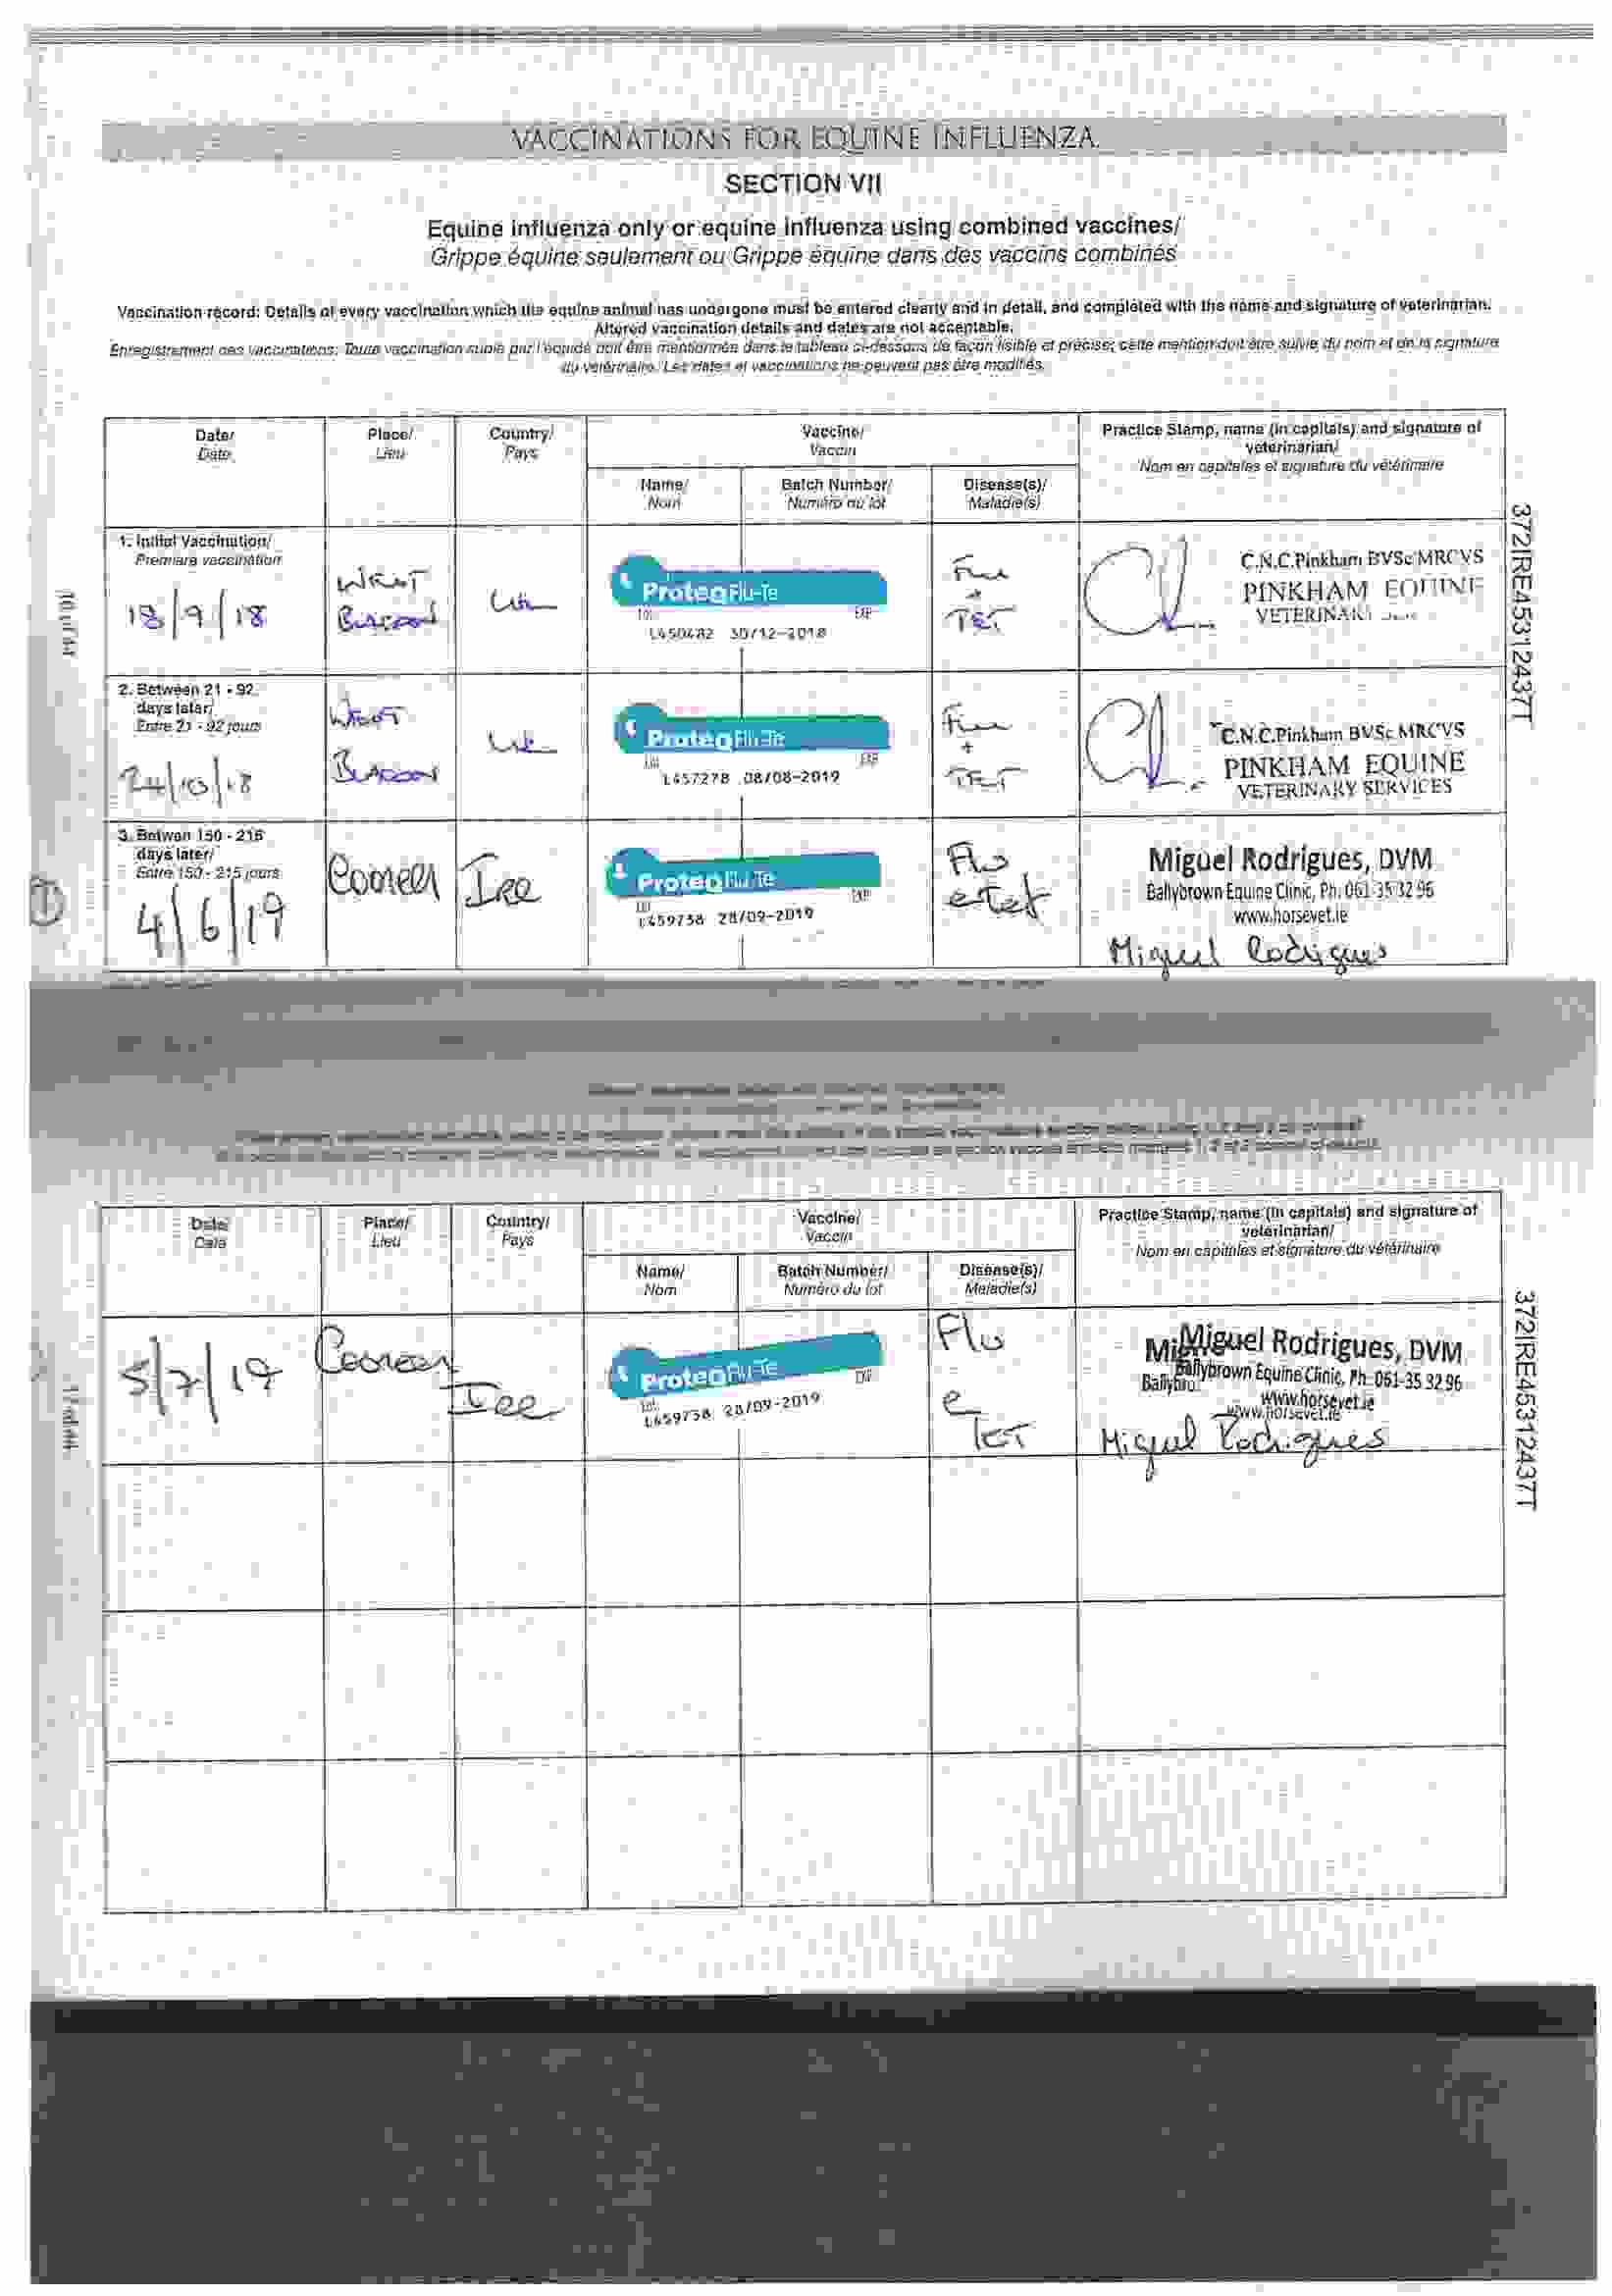 VACCINATIONS FOR EQUINE INFLUENZA
SECTION VII
Equine influenza only or equine influenza using combined vaccines/
Grippe équine seulement ou Grippe équine dans des vaccins combinés
Vaccination record: Details of every vaccination which the equine animal has undergone must be entered clearly and in detail, and completed with the name and signature of veterinarian.
Altered vaccination details and dates are not acceptable.
Enregistrement des vaccinations: Toute vaccination subie par l'équidé doit être mentionnée dans le tableau ci-dessous de façon lisible et précise; cette mention doit être suivie du nom et de la signature
du vétérinaire. Les dates et vaccinations ne peuvent pas être modifiés.
Date/ Place/ Country/ Vaccine/ Practice Stamp, name (in capitals) and signature of
Date Lieu Pays Vaccin veterinarian/
Nom en capitales et signature du vétérinaire
Name/ Batch Number/ Disease(s)/
Nom Numéro du lot Maladie(s)
1. Initial Vaccination/
Premiere vaccination
18/9/18
UK
ProteqFlu-Te
Lot EXP
L450482 30/12-2018
Flu
+
TET
C.N.C.Pinkham BVSc MRCVS
PINKHAM EQUINE
VETERINARY
2. Between 21 - 92
days later/
Entre 21 - 92 jours
24/10/18
UK
ProteqFlu-Te
Lot EXP
L457278 08/08-2019
Flu
+
TET
C.N.C.Pinkham BVSc MRCVS
PINKHAM EQUINE
VETERINARY SERVICES
3. Betwen 150 - 215
days later/
Entre 150 - 215 jours
4/6/19
Ire
ProteqFlu-Te
Lot EXP
L459758 28/09-2019
Flu
e Tet
Miguel Rodrigues, DVM
Ballybrown Equine Clinic, Ph. 061-35 32 96
www.horsevet.ie
Miguel Rodrigues
372IRE45312437T
Date/ Place/ Country/ Vaccine/ Practice Stamp, name (in capitals) and signature of
Date Lieu Pays Vaccin veterinarian/
Nom en capitales et signature du vétérinaire
Name/ Batch Number/ Disease(s)/
Nom Numéro du lot Maladie(s)
5/7/19
Ire
ProteqFlu-Te
Lot EXP
L459758 28/09-2019
Flu
e
TET
Miguel Rodrigues, DVM
Ballybrown Equine Clinic, Ph. 061-35 32 96
www.horsevet.ie
www.horsevet.ie
Miguel Rodrigues
372IRE45312437T